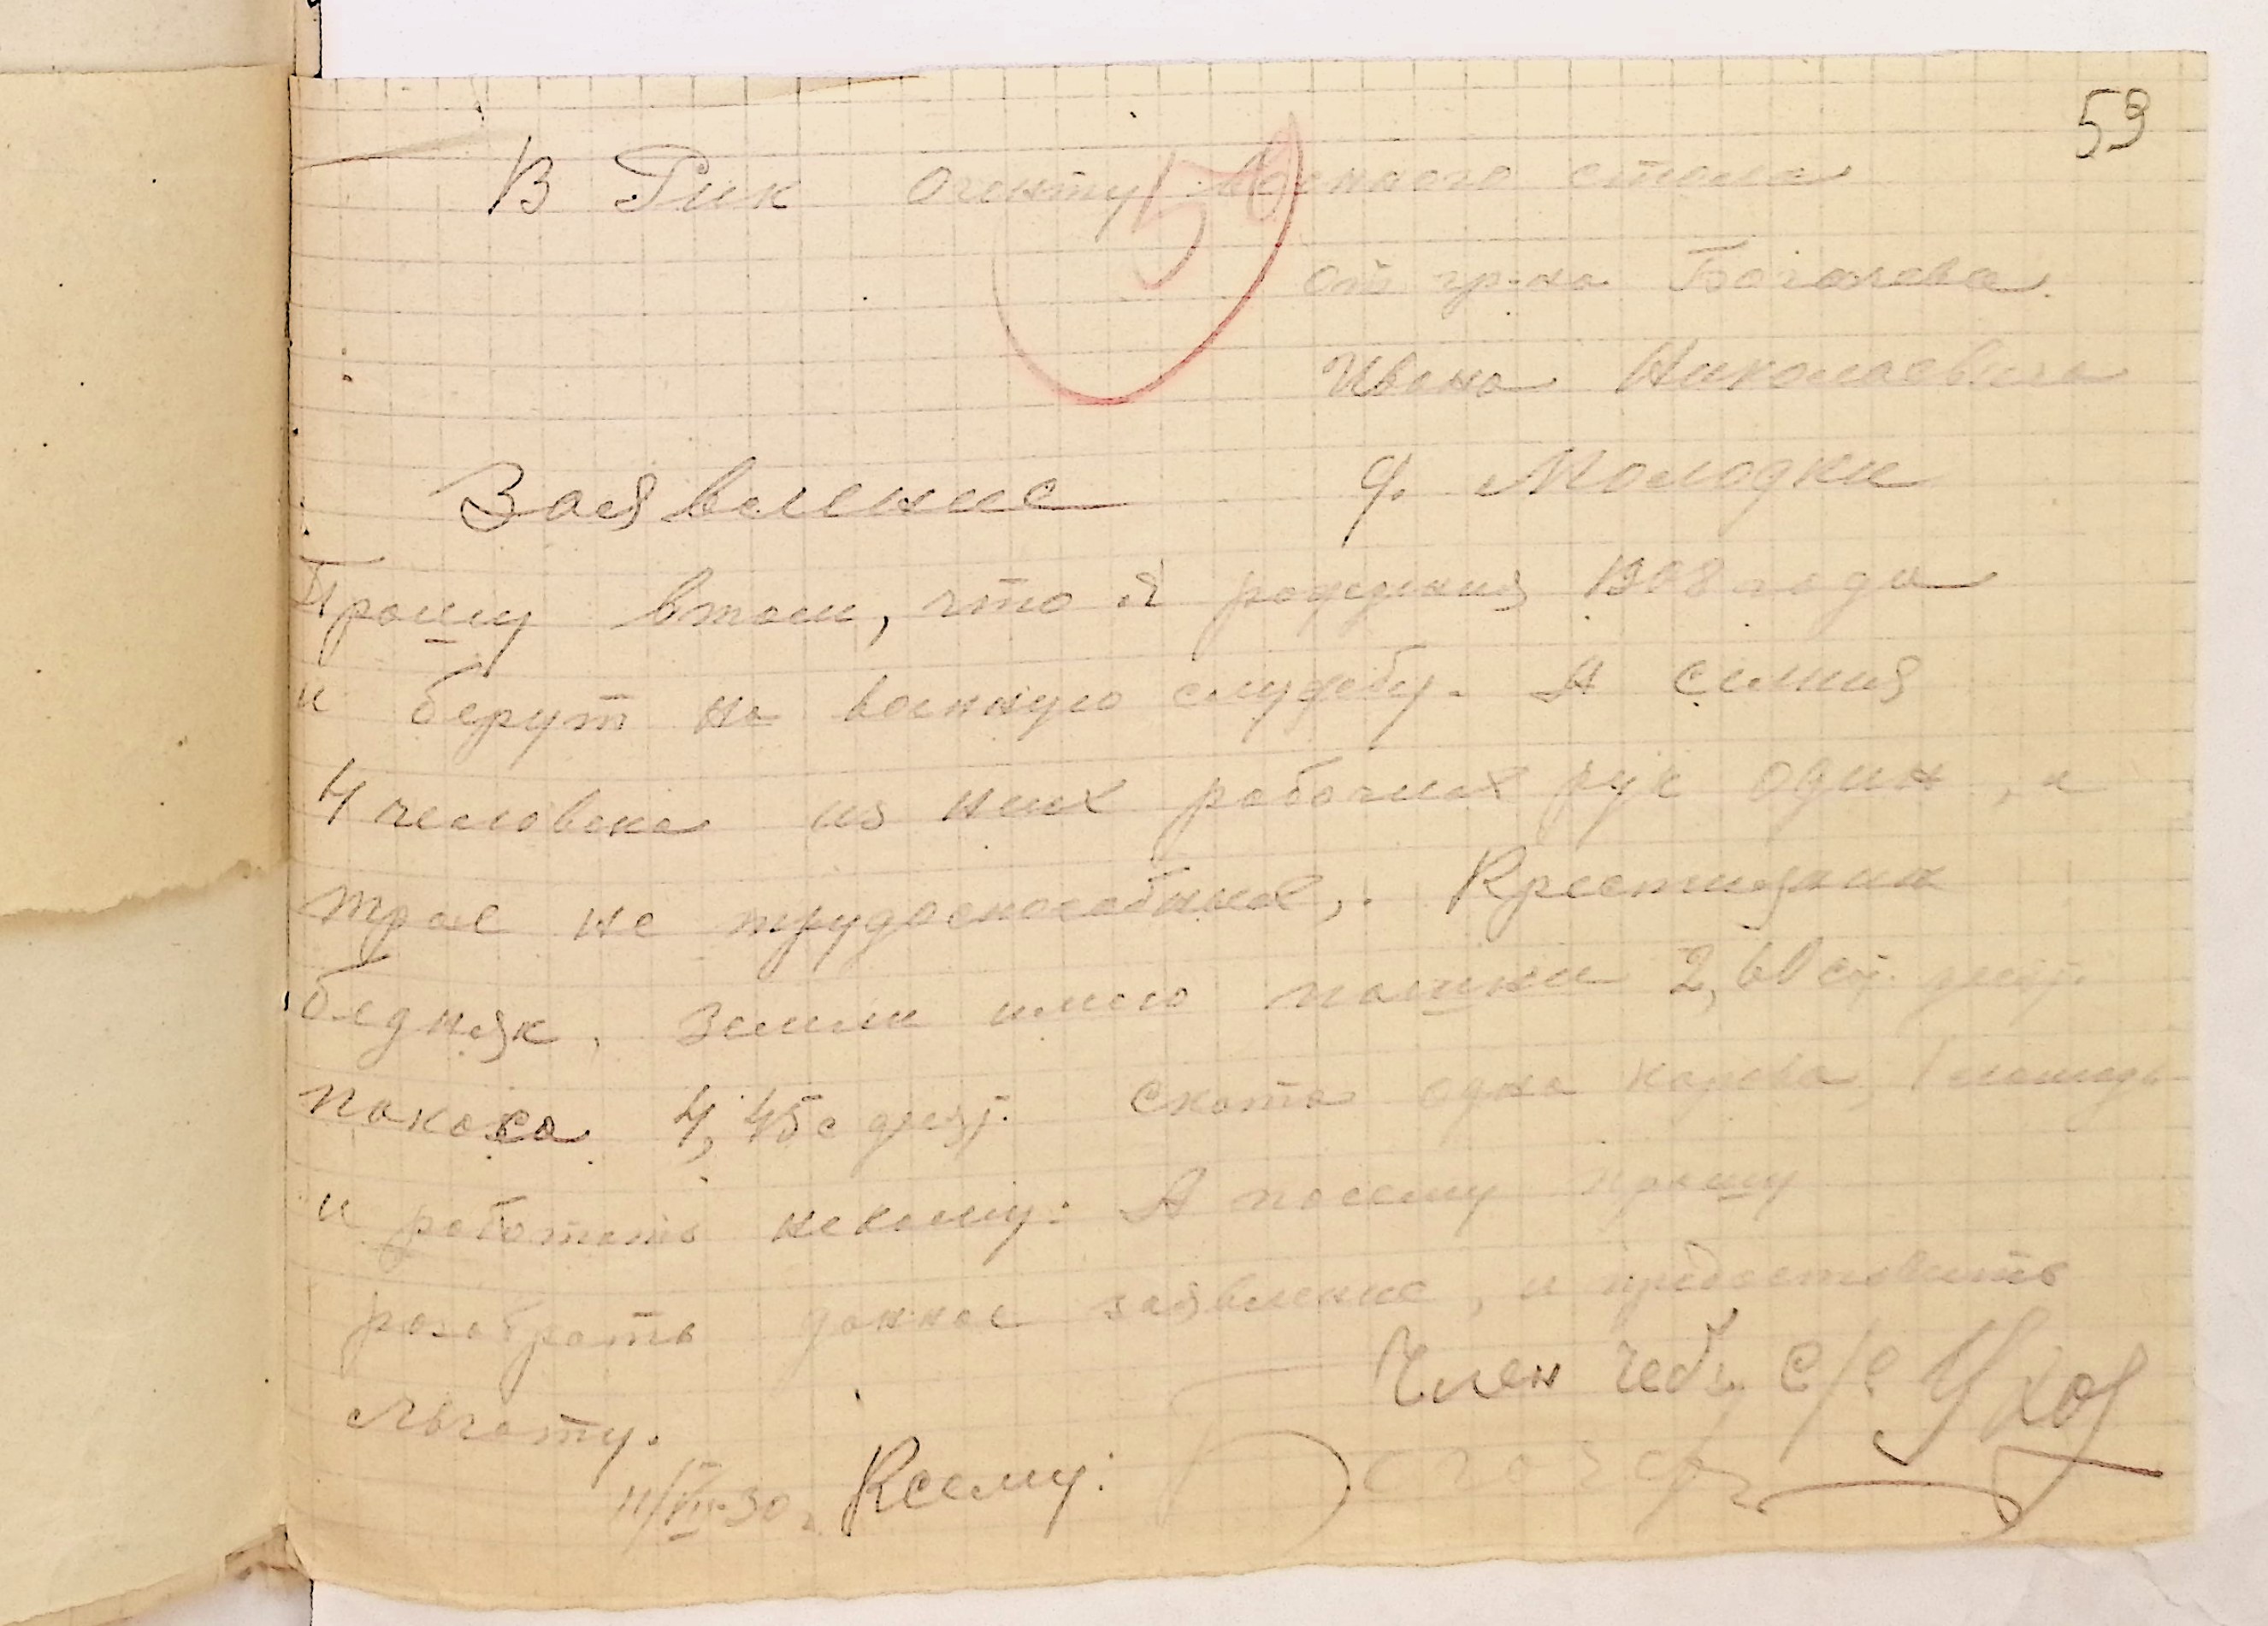 53
59
В Рик огенту Военного стола
от гр-на Богачева
Ивана Николаевича
д. Молодки
Заявление
Прошу втом, что я рождения 1908 года
и берут на военную службу. А симия
4 человека из них рабочих рук один, а
трое не трудоспособных,. Крестиянин
бедняк, земли имею пашни 2,60 сот. дес.
покоса 4,45 с дес. скота одна корова, 1 лошадь
и работать некому. А посему прошу
розобрать данное заявление, и предоставить
льготу.
Член Чеб. с/с
11/VIII-30 г. Ксему: